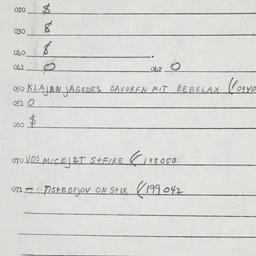 020 $
030 $
040 $
041 0 042 0
050 KLAJBN JAGEDES DAVOREN MIT BEBELAX
051 0
060 $
070 VOS MICEJET S+FIRE 198050
071 - TISTEBEJOV ON STIX 199042